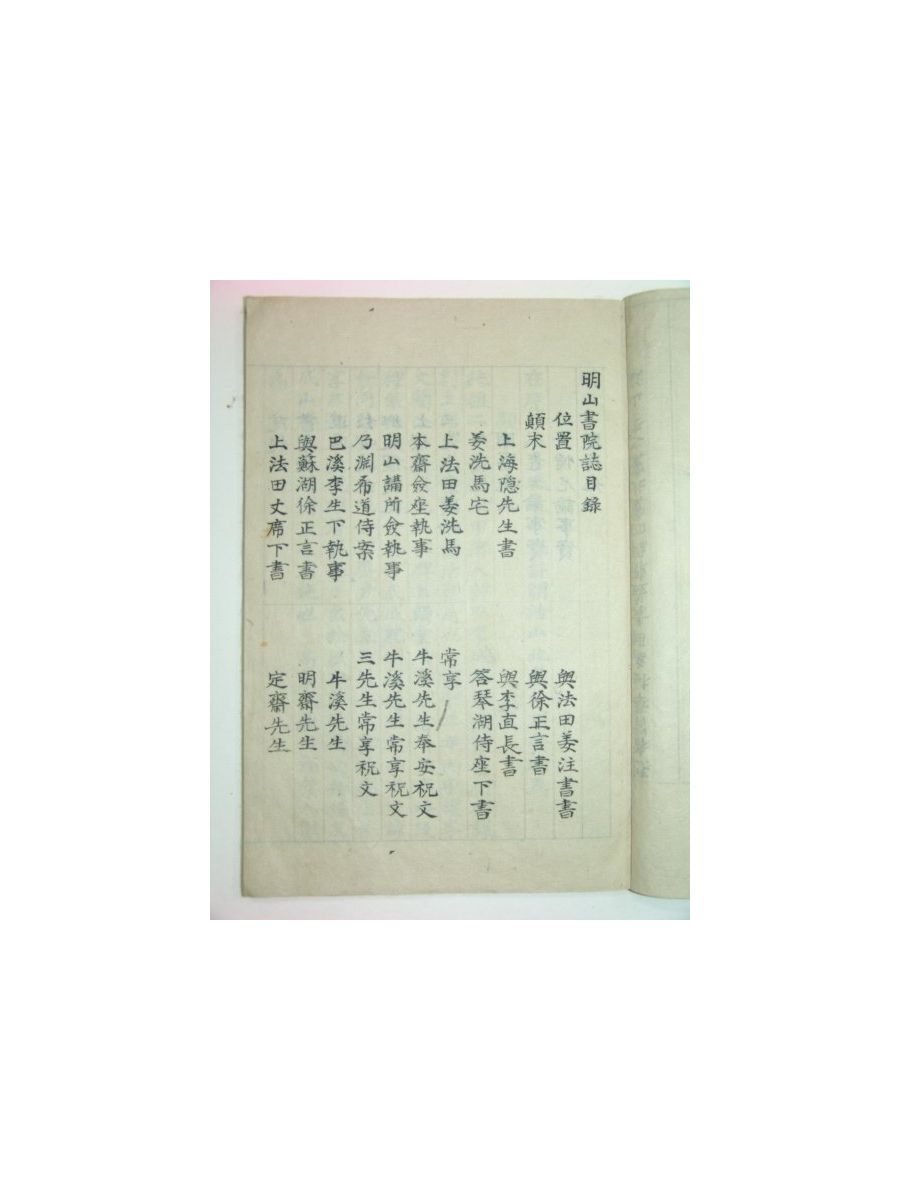 明山書院誌目錄
位置
顛末
上海隱先生書
姜洗馬宅
上法田姜洗馬
本齋僉座執事
明山講所僉執事
乃淵希道侍案
巴溪李生下執事
與蘇湖徐正言書
上法田丈席下書
與法田姜注書書
與徐正言書
與李直長書
答琴湖侍座下書
常享
牛溪先生奉安祝文
牛溪先生常享祝文
三先生常享祝文
牛溪先生
明齋先生
定齋先生